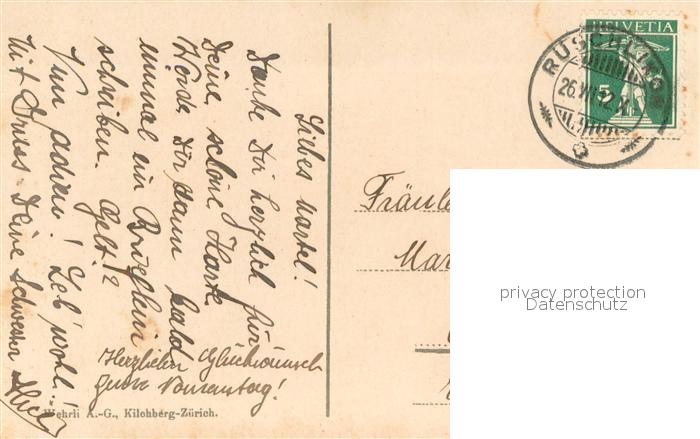 Liebes Martel!
Danke Dir herzlich für
Deine schöne Karte
Werde Dir dann bald
einmal ein Brieflein
schreiben. Gelt!?
Nun adieu! Leb' wohl!
Mit Gruss Deine Schwester
Herzlichen Glückwunsch
zum Namenstag!
Wehrli A.-G., Kilchberg-Zürich.
HELVETIA
5
RÜSCHLIKON
26.VII.12.X
Fräule
Mar
privacy protection
Datenschutz